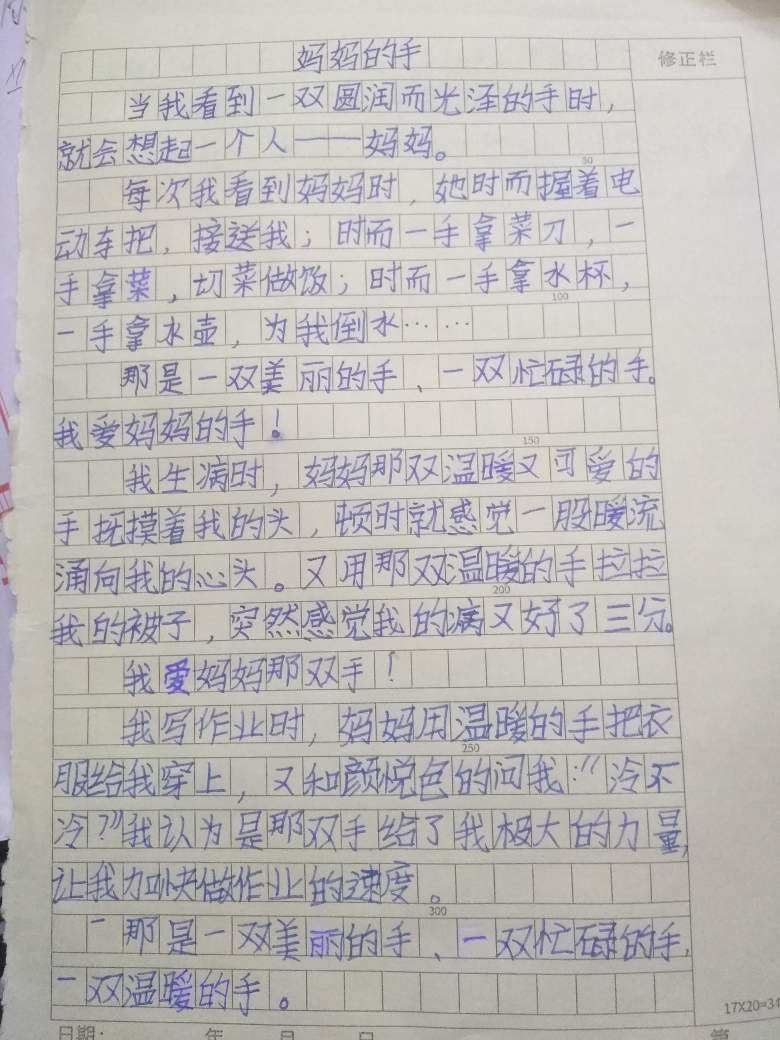 妈妈的手
修正栏
当我看到一双圆润而光泽的手时，
就会想起一个人——妈妈。
50
每次我看到妈妈时，她时而握着电
动车把，接送我；时而一手拿菜刀，一
手拿菜，切菜做饭；时而一手拿水杯，
100
一手拿水壶，为我倒水……
那是一双美丽的手、一双忙碌的手。
我爱妈妈的手！
150
我生病时，妈妈那双温暖又可爱的
手抚摸着我的头，顿时就感觉一股暖流
涌向我的心头。又用那双温暖的手拉拉
200
我的被子，突然感觉我的病又好了三分。
我爱妈妈那双手！
我写作业时，妈妈用温暖的手把衣
250
服给我穿上，又和颜悦色的问我："冷不
冷？"我认为是那双手给了我极大的力量，
让我加快做作业的速度。
300
那是一双美丽的手、一双忙碌的手，
一双温暖的手。
17X20=34
日期： 年 月 日 第